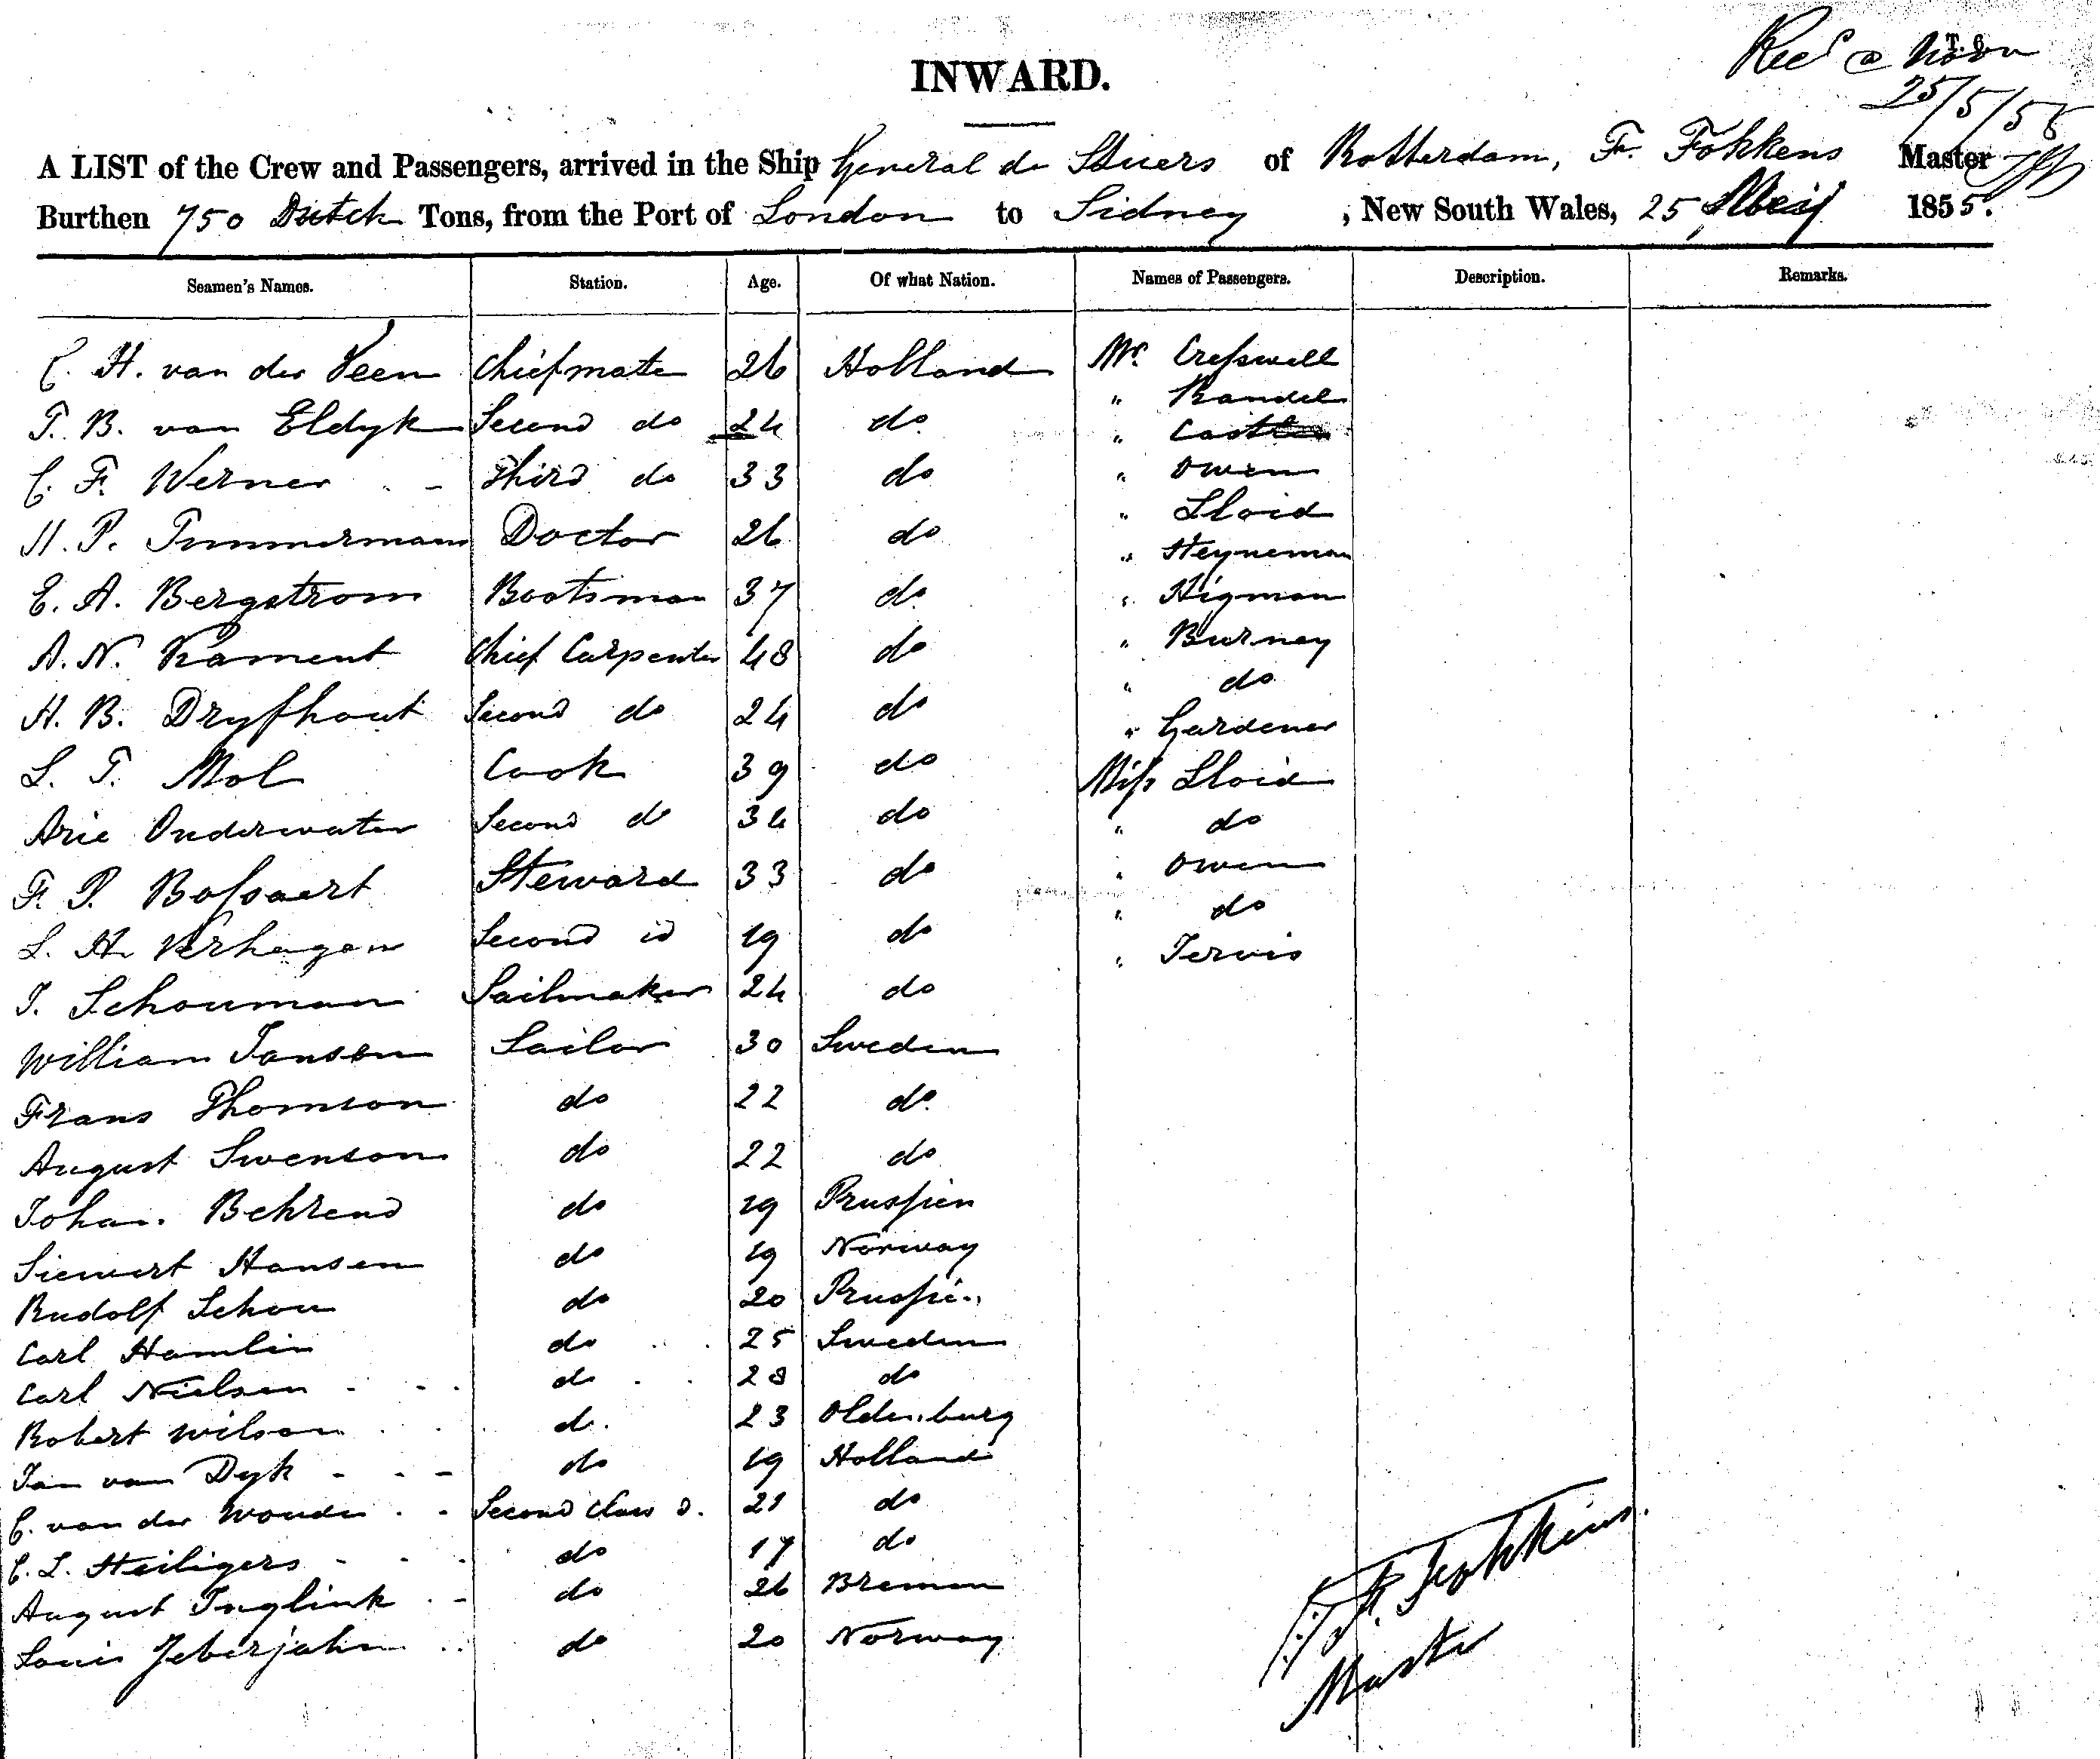 Recd @ Noon
25/5/55
INWARD.
A LIST of the Crew and Passengers, arrived in the Ship General de Stuers of Rotterdam, F. Fokkens Master
Burthen 750 Dutch Tons, from the Port of London to Sidney , New South Wales, 25 Meij 1855.
Seamen's Names. Station. Age. Of what Nation. Names of Passengers. Description. Remarks.
C. H. van der Veen Chiefmate 26 Holland Mr. Cresswell
" Randel
T. B. van Eldyk Second do 24 do " Castle
C. F. Werner - Third do 33 do " Owen
" Lloid
H. P. Timmermans Doctor 26 do " Heyneman
E. A. Bergstrom Bootsman 37 do " Higman
A. N. Kament Chief Carpenter 48 do " Burney
" do
H. B. Dryfhout Second do 24 do " Gardener
L. T. Mol Cook 39 do Miss Lloid
Arie Onderwater Second do 34 do " do
F. P. Bossaert Steward 33 do " Owen
" do
L. H. Verhagen Second id 19 do " Jervis
J. Schouman Sailmaker 24 do
William Jansen Sailor 30 Sweden
Frans Thomson do 22 do
August Swenson do 22 do
Johan Behrend do 19 Prussien
Siewert Hansen do 19 Norway
Rudolf Schou do 20 Prussien
Carl Hamlin do 25 Sweden
Carl Nielsen do 28 do
Robert Wilson do 23 Oldenburg
Jan van Dyk do 19 Holland
C. van der Woude Second Class d. 21 do
C. L. Heiligers do 17 do
August Inglink do 26 Bremen
Louis Jeberjahn do 20 Norway
F. Fokkens
Master